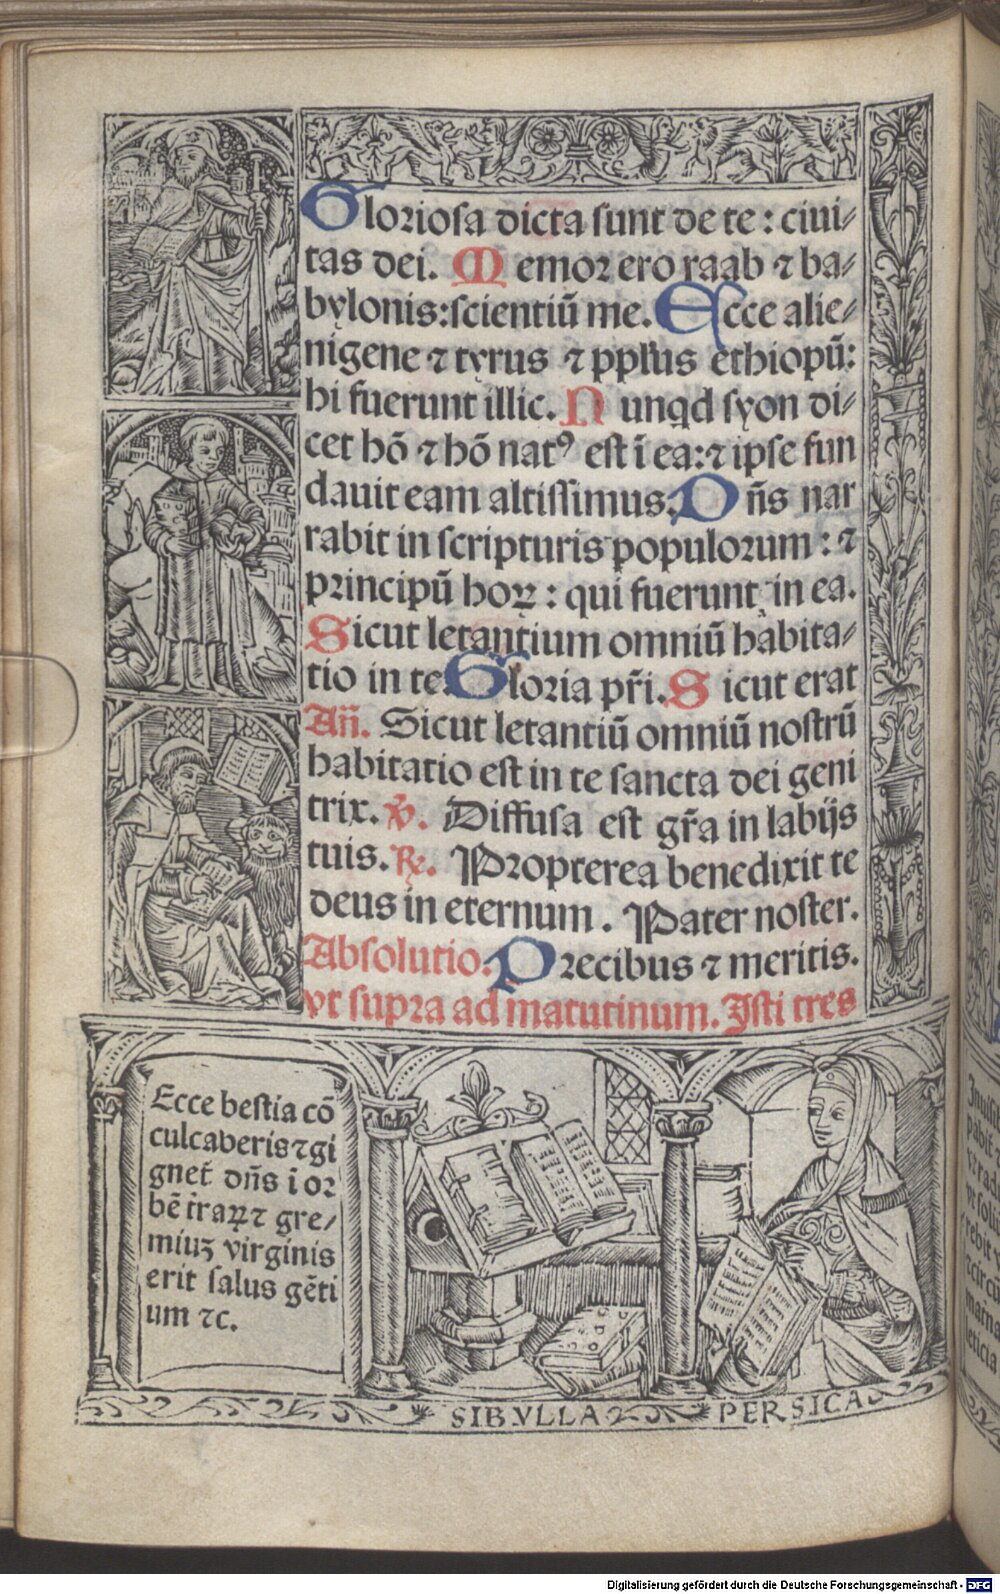 Gloriosa dicta sunt de te : ciui/
tas dei. Memor ero raab ⁊ ba/
bylonis:scientiū me. Ecce alie/
nigene ⁊ tyrus ⁊ ppl'us ethiopū:
hi fuerunt illic. Nunqd syon di/
cet hō ⁊ hō natꝰ est ī ea:⁊ ipse fun
dauit eam altissimus. Dn̄s nar
rabit in scripturis populorum : ⁊
principū hoꝝ : qui fuerunt in ea.
Sicut letantium omniū habita/
tio in te. Gloria pr̄i. Sicut erat
Añ. Sicut letantiū omniū nostrū
habitatio est in te sancta dei geni
trix. ℣. Diffusa est gr̄a in labijs
tuis. ℟. Propterea benedixit te
deus in eternum. Pater noster.
Absolutio. Precibus ⁊ meritis.
vt supra ad matutinum. Isti tres
Ecce bestia cō
culcaberis⁊gi
gnet̄ dn̄s ī or
bē t̄raꝝ⁊ gre/
miuꝫ virginis
erit salus gēti
um ⁊c.
SIBVLLA PERSICA
Digitalisierung gefördert durch die Deutsche Forschungsgemeinschaft - DFG